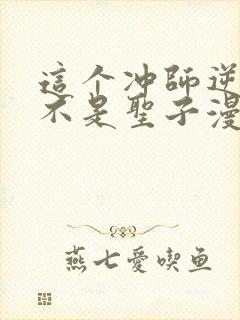 這个冲師逆
不是聖子漫
燕七愛喫鱼